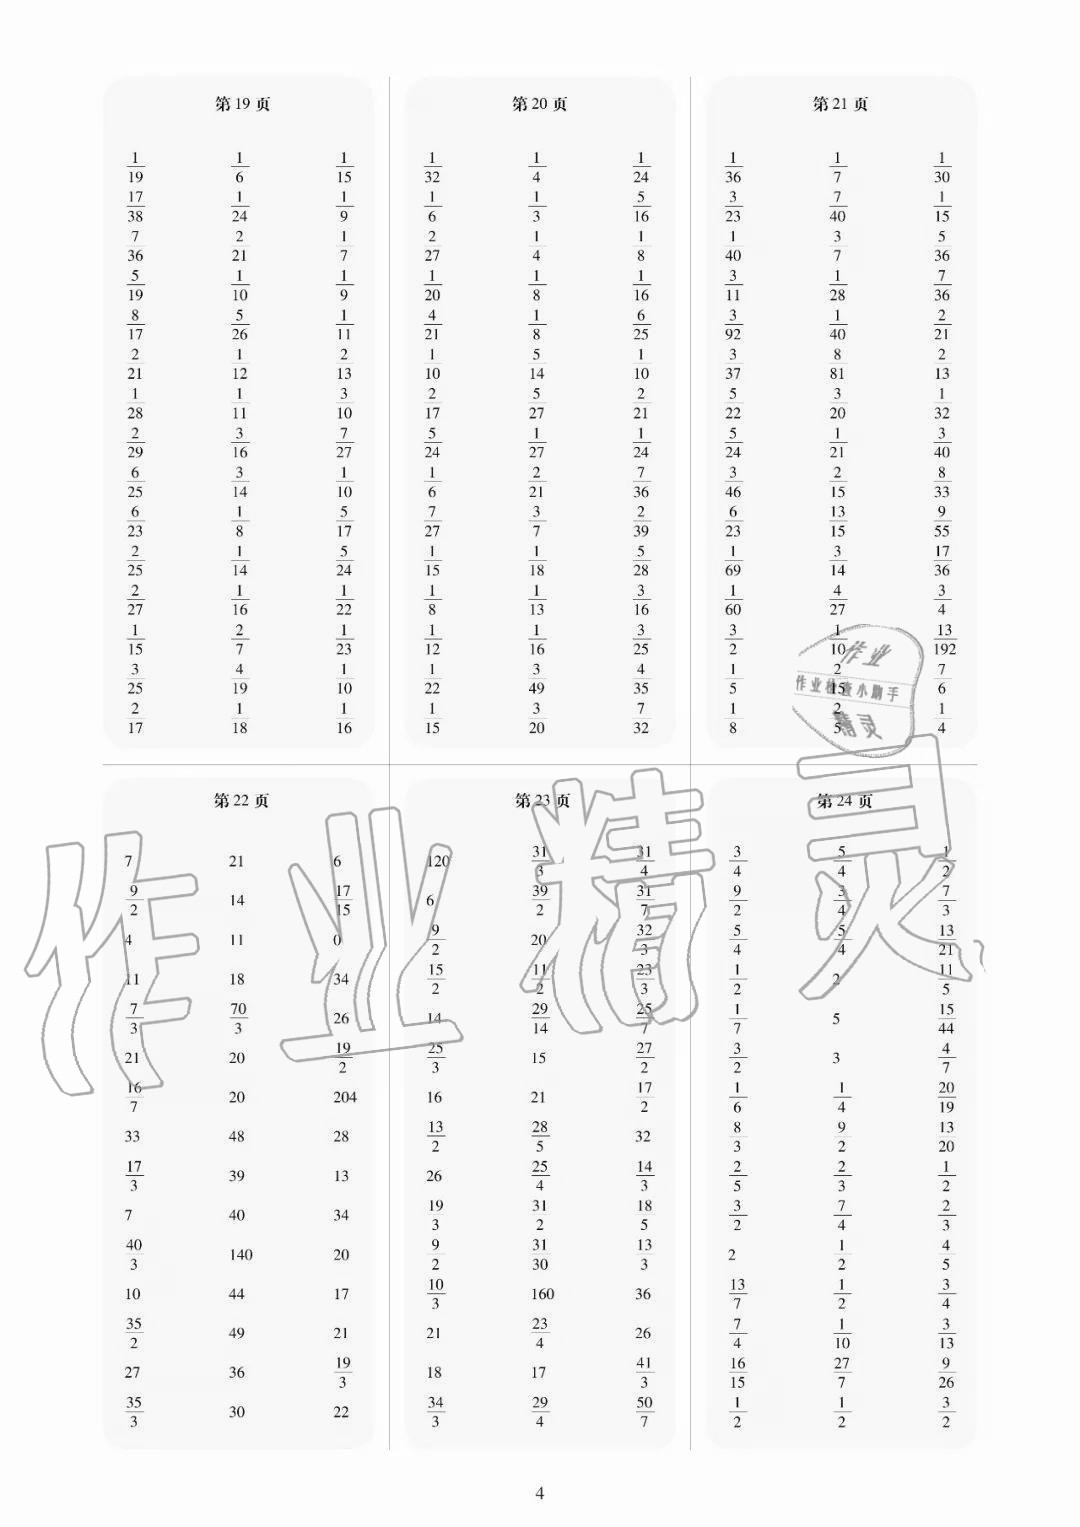 第 19 页
1/19 1/6 1/15
17/38 1/24 1/9
7/36 2/21 1/7
5/19 1/10 1/9
8/17 5/26 1/11
2/21 1/12 2/13
1/28 1/11 3/10
2/29 3/16 7/27
6/25 3/14 1/10
6/23 1/8 5/17
2/25 1/14 5/24
2/27 1/16 1/22
1/15 2/7 1/23
3/25 4/19 1/10
2/17 1/18 1/16
第 20 页
1/32 1/4 1/24
1/6 1/3 5/16
2/27 1/4 1/8
1/20 1/8 1/16
4/21 1/8 6/25
1/10 5/14 1/10
2/17 5/27 2/21
5/24 1/27 1/24
1/6 2/21 7/36
7/27 3/7 2/39
1/15 1/18 5/28
1/8 1/13 3/16
1/12 1/16 3/25
1/22 3/49 4/35
1/15 3/20 7/32
第 21 页
1/36 1/7 1/30
3/23 7/40 1/15
1/40 3/7 5/36
3/11 1/28 7/36
3/92 1/40 2/21
3/37 8/81 2/13
5/22 3/20 1/32
5/24 1/21 3/40
3/46 2/15 8/33
6/23 13/15 9/55
1/69 3/14 17/36
1/60 4/27 3/4
3/2 1/10 13/192
1/5 2/15 7/6
1/8 2/5 1/4
作业
作业检查小助手
精灵
第 22 页
7 21 6
9/2 14 17/15
4 11 0
11 18 34
7/3 70/3 26
21 20 19/2
16/7 20 204
33 48 28
17/3 39 13
7 40 34
40/3 140 20
10 44 17
35/2 49 21
27 36 19/3
35/3 30 22
第 23 页
120 31/3 31/4
6 39/2 31/7
9/2 20 32/3
15/2 11/2 23/3
14 29/14 25/7
25/3 15 27/2
16 21 17/2
13/2 28/5 32
26 25/4 14/3
19/3 31/2 18/5
9/2 31/30 13/3
10/3 160 36
21 23/4 26
18 17 41/3
34/3 29/4 50/7
第 24 页
3/4 5/4 1/2
9/2 3/4 7/3
5/4 5/4 13/21
1/2 2 11/5
1/7 5 15/44
3/2 3 4/7
1/6 1/4 20/19
8/3 9/2 13/20
2/5 2/3 1/2
3/2 7/4 2/3
2 1/2 4/5
13/7 1/2 3/4
7/4 1/10 3/13
16/15 27/7 9/26
1/2 1/2 3/2
作业精灵
4